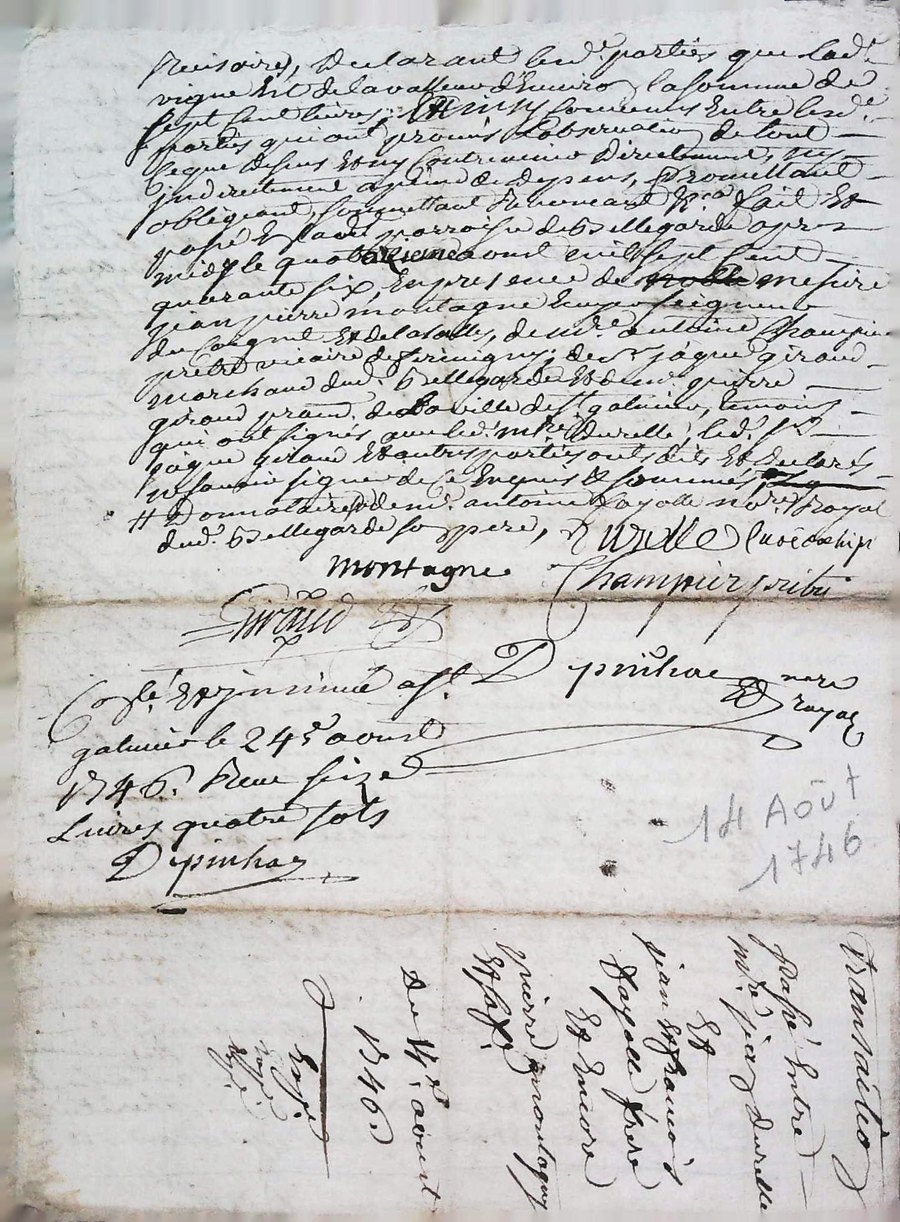 declarant lesd. parties que lad.
vigne est de la valleur d'environ la somme de
sept cent livres; ainsy convenus entre lesd.
parties qui ont promis l'observation de tout
ce que dessus et ny contrevenir directement, ny
indirectement a peine de depens, promettant
obligeant, soumettant renonceant &ca fait et
passé parroisse de Bellegarde apres
midy le quatorzieme aoust mil sept cent
quarante six, en presence de noble mesire
jean pierre montagne seigneur
du et de lasalle, de mre. antoine Champier
pretre vicaire de de Sr. jâque giraud
marchand dud. Bellegarde et de sr. pierre
giraud prat. de la ville de St. galmier, temoins
qui ont signés avec led. mre durelle, led. Sr.
jâque giraud et autres parties ont dits et declarés
ne savoir signer de ce enquis et sommés
# Donnataire de mr. antoine fayolle nore. royal
dud. Bellegarde son pere, Durelle
montagne Champier prbtre
Giraud
Depinhac nore
royal
Collé. et insinué a St.
galmier le 24e. aoust
1746. Receu seize
Livres quatre sols
Depinhac
14 Août
1746
Transaction
passé entre
mre jean durelle
Et
jean et francois
fayolle frere
Et Encore
pierre montagny
et sa fe.
Du 14e. aoust
1746.